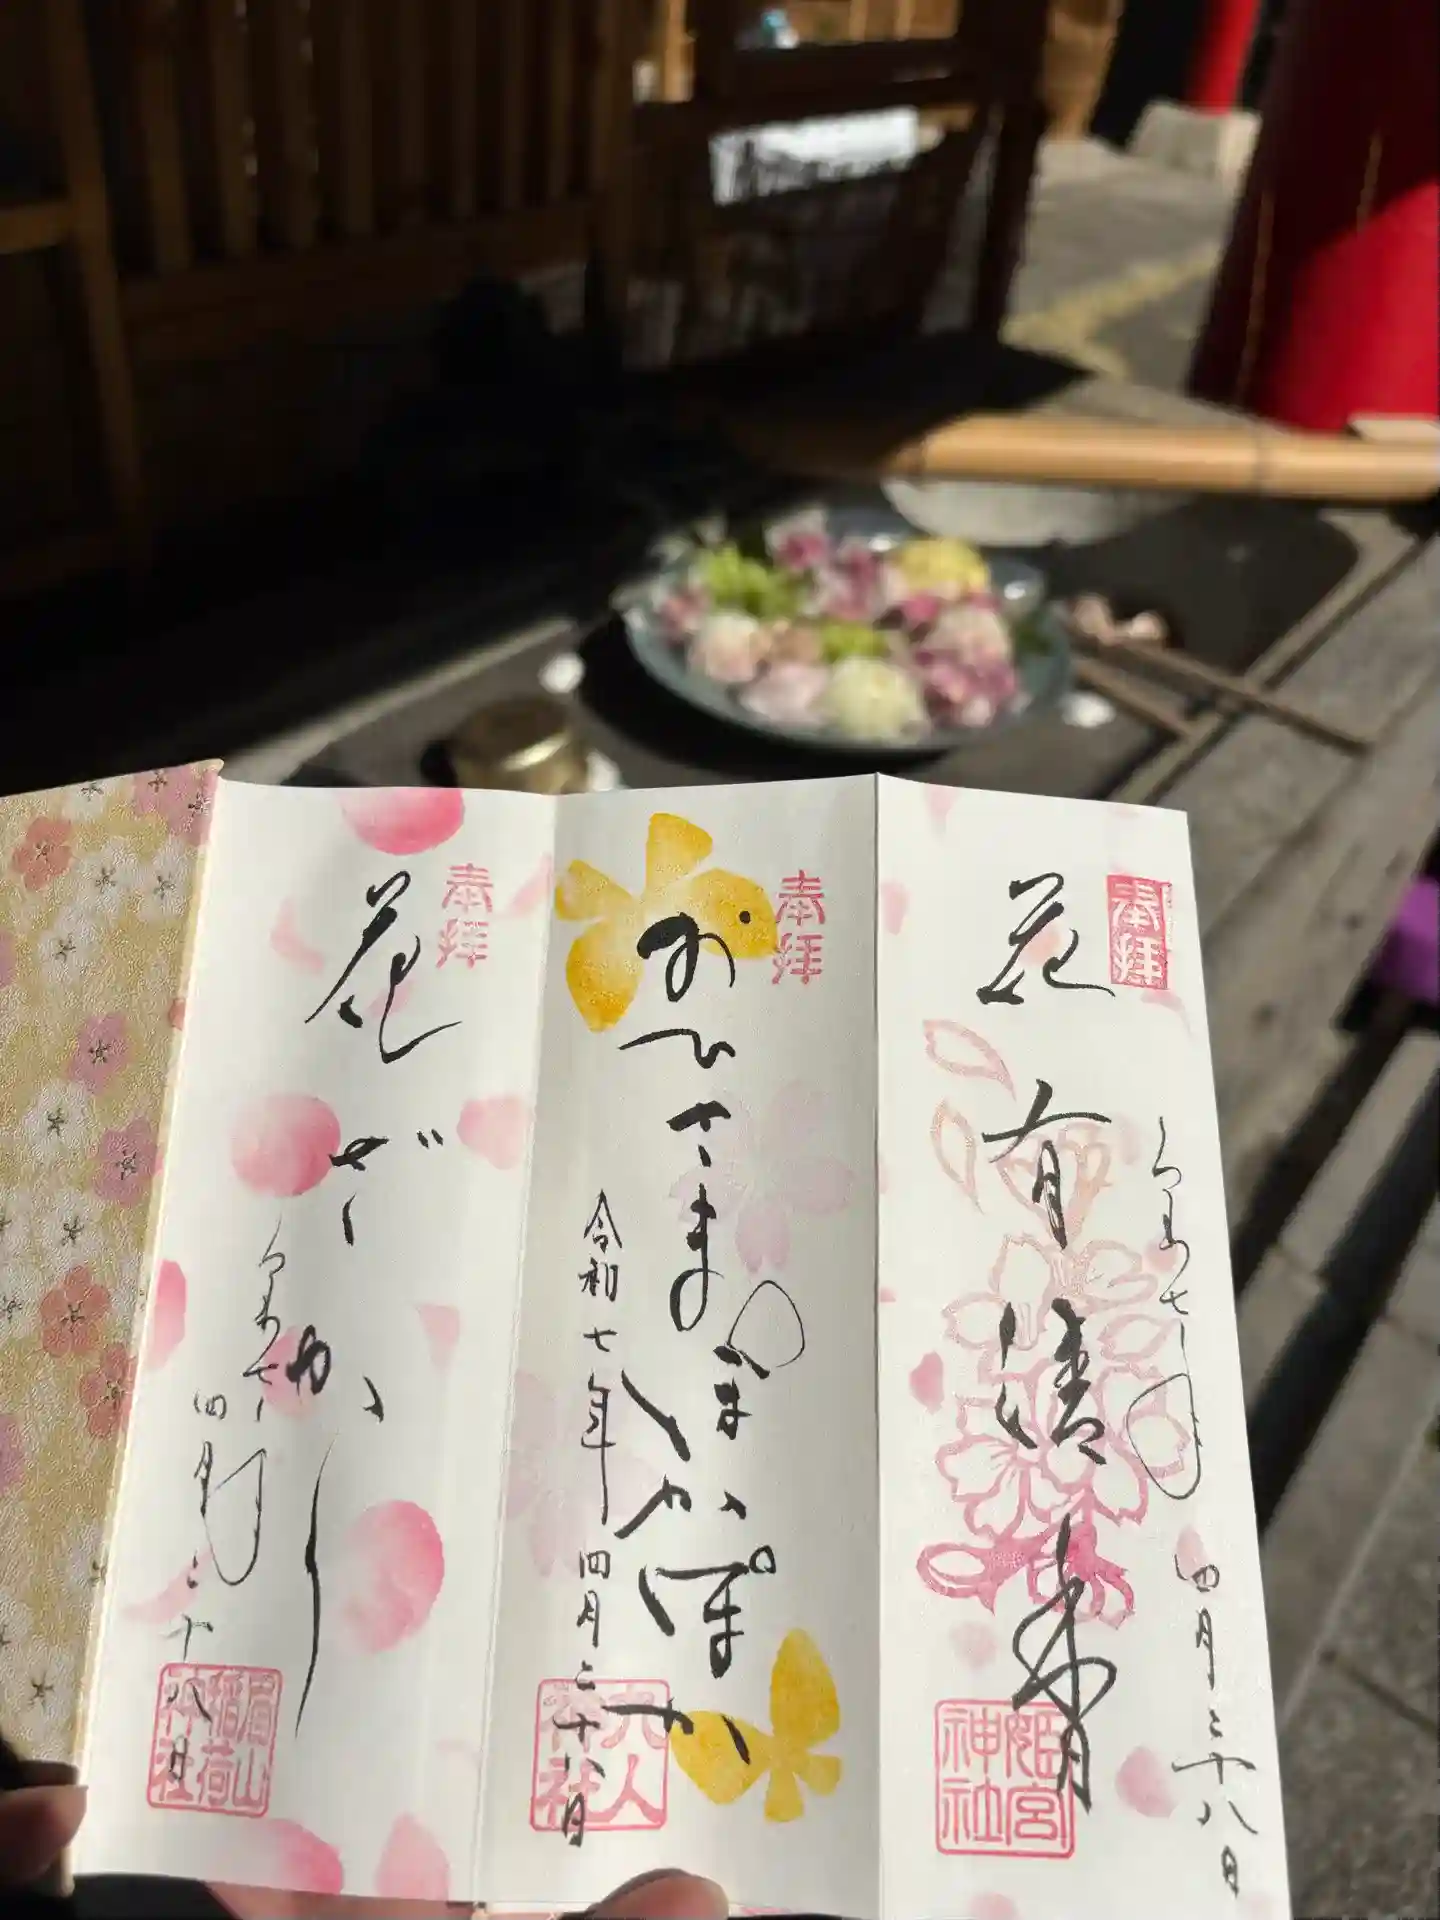 奉拝
花有清香
令和七年
四月二十八日
姫宮神社
奉拝
おひさまぽかぽか
令和七年四月二十八日
大人神社
奉拝
花ざかり
令和七年
四月二十八日
眉山稲荷神社